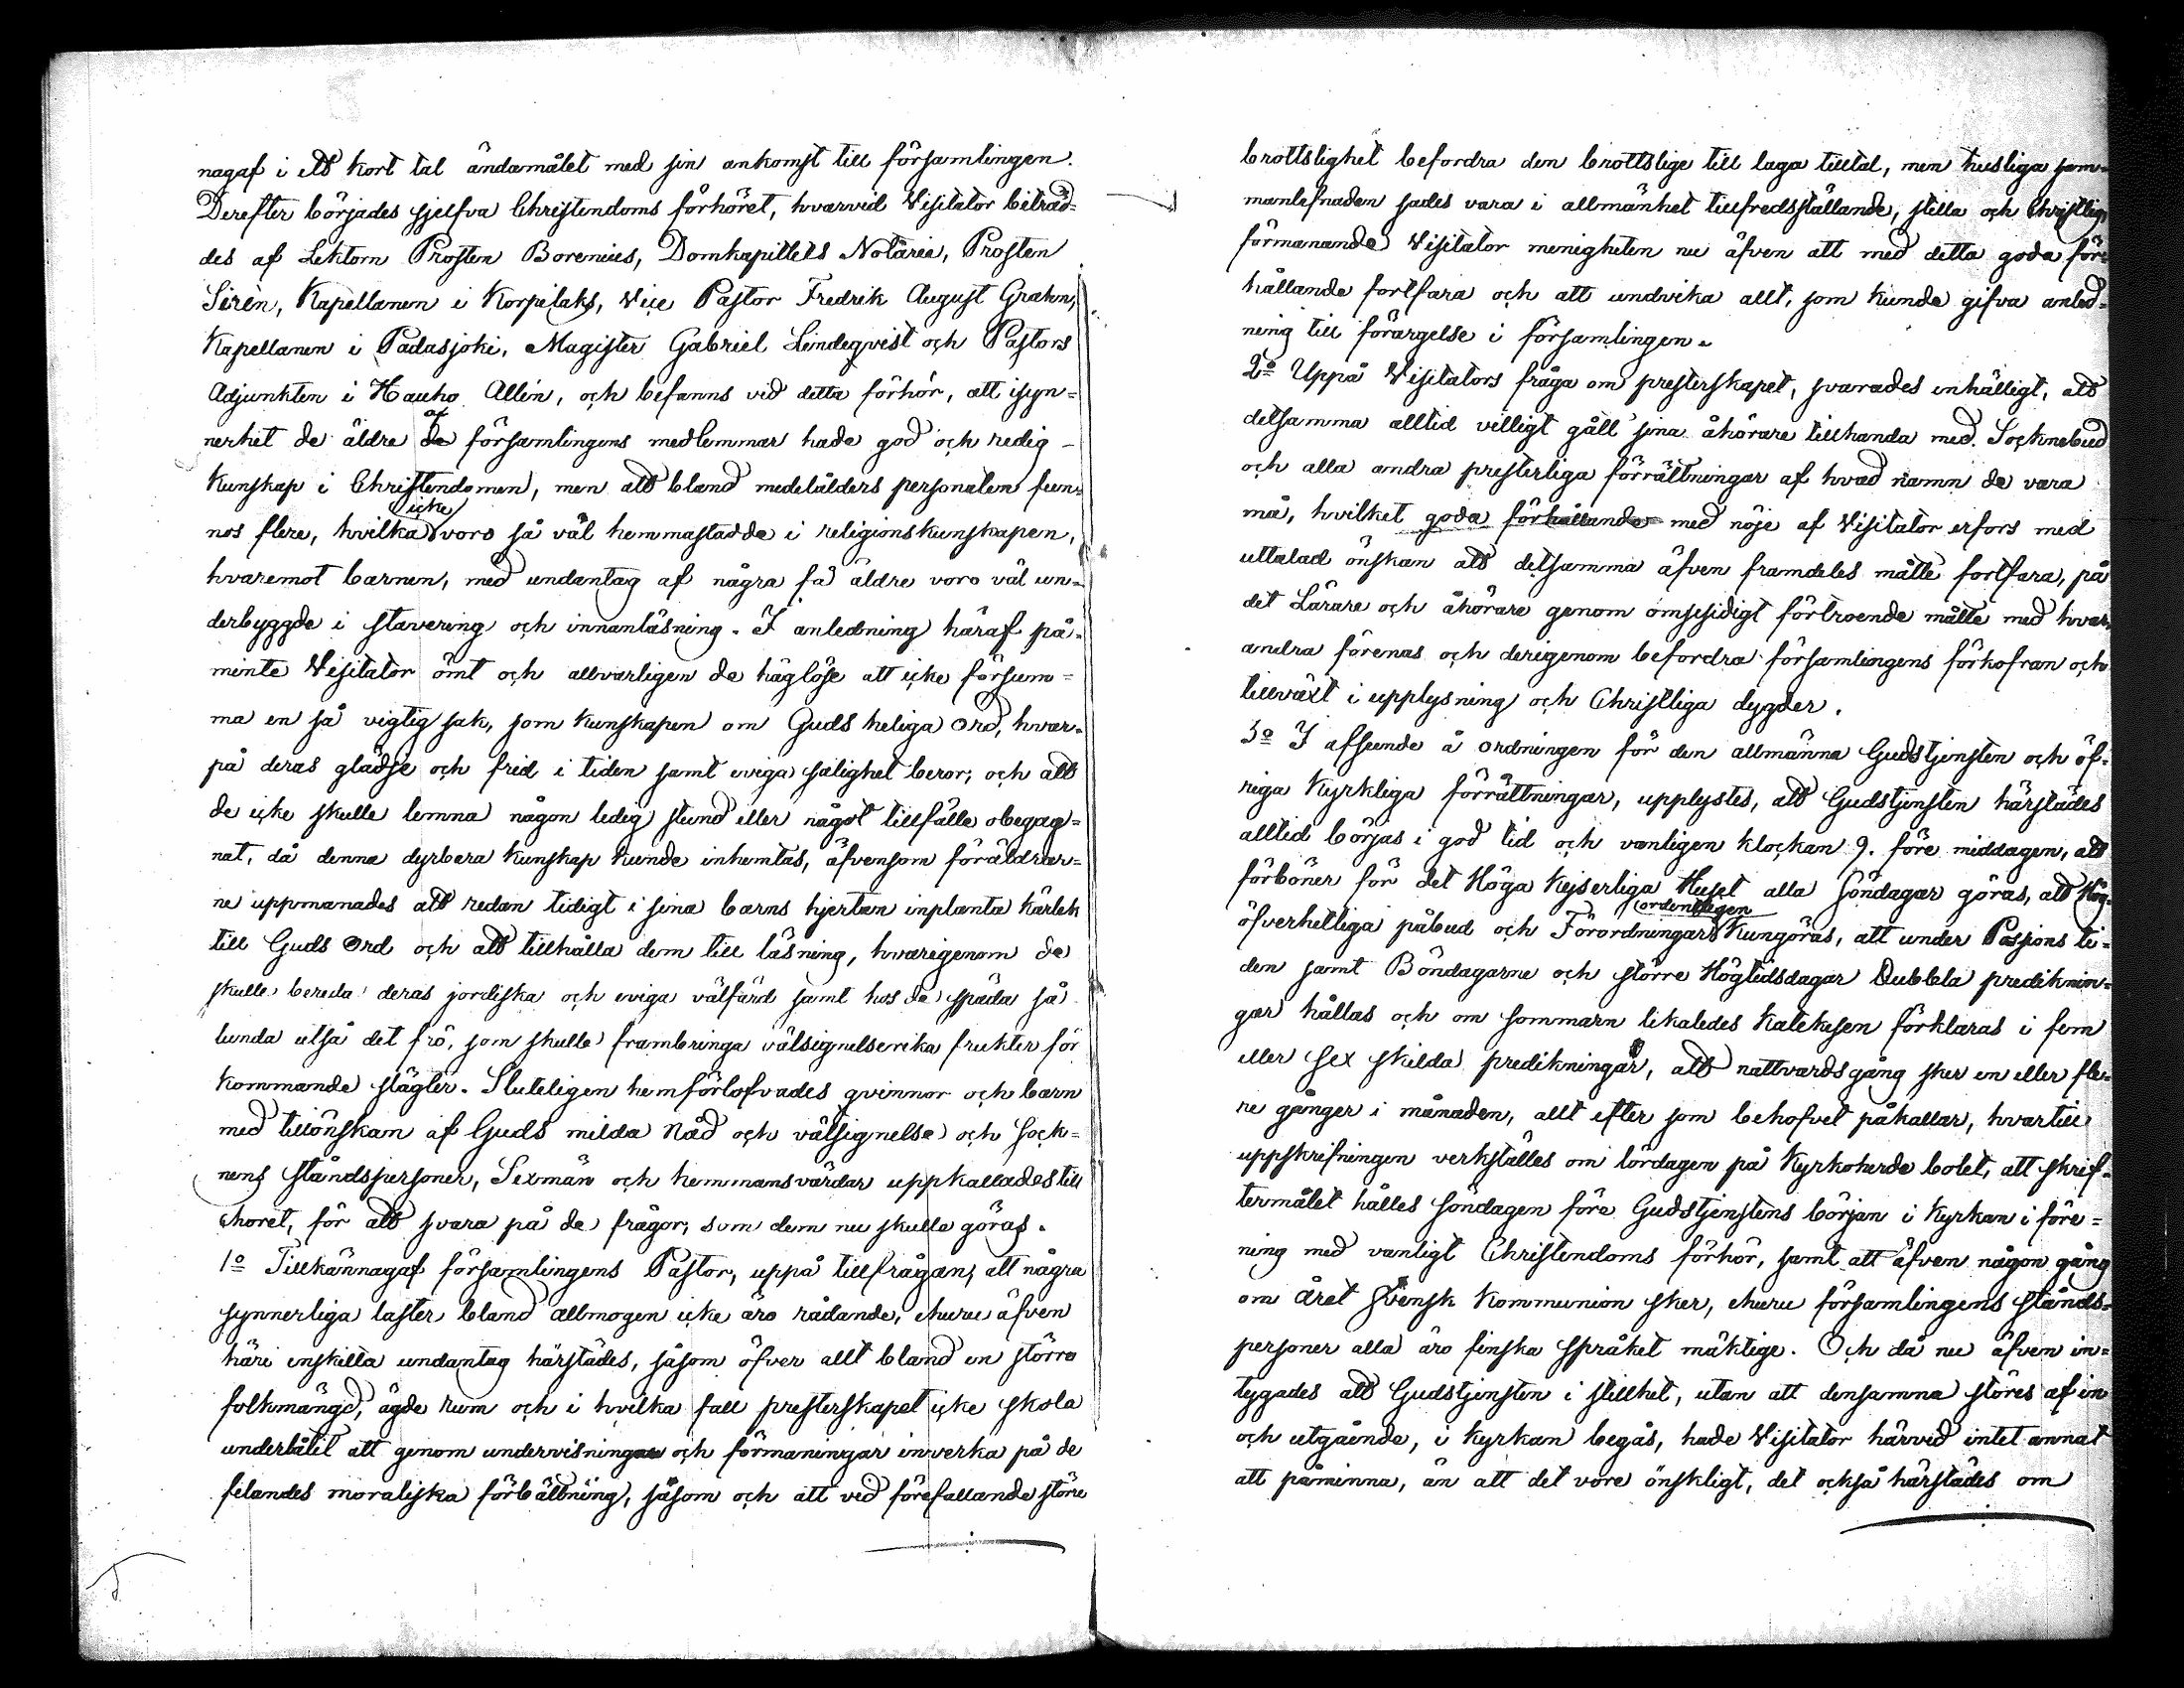 nagaf i ett kort tal ändamålet med sin ankomst till församlingen.
Derefter börjades sjelfva Christendoms förhöret, hvarvid Visitator biträd-
des af Lektorn Prosten Borenius, Domkapitlets Notarie, Prosten
Sirén, Kapellanen i Korpilaks, Vice Pastor Fredrik August Grahn,
Kapellanen i Padasjoki, Magister Gabriel Lindeqvist och Pastors
Adjunkten i Hauho Allén, och befanns vid detta förhör, att isyn-
nerhet de äldre af församlingens medlemmar hade god och redig
Kunskap i Christendomen, men att bland medelålders personalen fun-
nos flere, hvilka icke voro så väl hemmastadde i religionskunskapen,
hvaremot barnen, med undantag af några få äldre voro väl un-
derbyggde i stavering och innanläsning. I anledning häraf på-
minte Visitator ömt och allvarligen de håglöse att icke försum-
ma en så vigtig sak, som kunskapen om Guds heliga Ord, hvar-
på deras glädje och frid i tiden samt eviga salighet beror; och att
de icke skulle lemna någon ledig stund eller något tillfälle obegag-
nat, då denna dyrbara kunskap kunde inhemtas, äfvensom föräldrar-
ne uppmanades att redan tidigt i sina barns hjertan inplanta kärlek
till Guds Ord och att tillhålla dem till läsning, hvarigenom de
skulle bereda deras jordiska och eviga välfärd samt hos de späda så
lunda utså det frö, som skulle frambringa välsignelserika frukter för
kommande slägter. Sluteligen hemförlofvades qvinnor och barn
med tillönskan af Guds milda Nåd och välsignelse och Sock-
nens ståndspersoner, Sexmän och hemmansvärdar uppkallades till
choret, för att svara på de frågor, som dem nu skulle göras.
1o Tillkännagaf församlingens Pastor, uppå tillfrågan, att några
synnerliga laster bland allmogen icke äro rådande, ehuru äfven
häri enskilta undantag härstädes, såsom öfver allt bland en större
folkmängd, ägde rum och i hvilka fall presterskapet icke skola
underlåtit att genom undervisningar och förmaningar inverka på de
felandes moraliska förbättning, såsom och att vid förefallande större
brottslighet befordra den brottslige till laga tilltal, men husliga sam-
manlefnaden sades vara i allmänhet tillfredsställande, stilla och Christlig
förmanande Visitator menigheten nu äfven att med detta goda för-
hållande fortfara och att undvika allt, som kunde gifva anled-
ning till förargelse i församlingen.
2o Uppå Visitators fråga om presterskapet, svarades enhälligt, att
detsamma alltid villigt gått sina åhörare tillhanda med Socknebud
och alla andra presterliga förrättningar af hvad namn de vara
må, hvilket goda förhållande med nöje af Visitator erfors med
uttalad önskan att detsamma äfven framdeles måtte fortfara, på
det Lärare och åhörare genom ömsesidigt förtroende måtte med hvar-
andra förenas och derigenom befordra församlingens förkofran och
tillväxt i upplysning och Christliga dygder.
3o I afseende å ordningen för den allmänna Gudstjensten och öf-
riga Kyrkliga förrättningar, upplystes, att Gudstjensten härstädes
alltid börjas i god tid och vanligen klockan 9. före middagen, att
förböner för det Höga Kejserliga Huset alla Söndagar göras, att Hög-
öfverhetliga påbud och Förordningar ordentligen Kungöras, att under Passions ti-
den samt Böndagarne och större Högtidsdagar Dubbla prediknin-
gar hållas och om sommarn likaledes Katekesen förklaras i fem
eller sex skilda predikningar, att nattvardsgång sker en eller fle-
re gånger i månaden, allt efter som behofvet påkallar, hvartill
uppskrifningen verkställes om lördagen på Kyrkoherde bolet, att skrif-
termålet hålles Söndagen före Gudstjenstens början i Kyrkan i före-
ning med vanligt Christendoms förhör, samt att äfven någon gång
om året Svensk Kommunion sker, ehuru församlingens stånds-
personer alla äro finska språket mäktige. Och då nu äfven in-
tygades att Gudstjensten i stillhet, utan att densamma störes af in
och utgående, i Kyrkan begås, hade Visitator härvid intet annat
att påminna, än att det vore önskligt, det också härstädes om